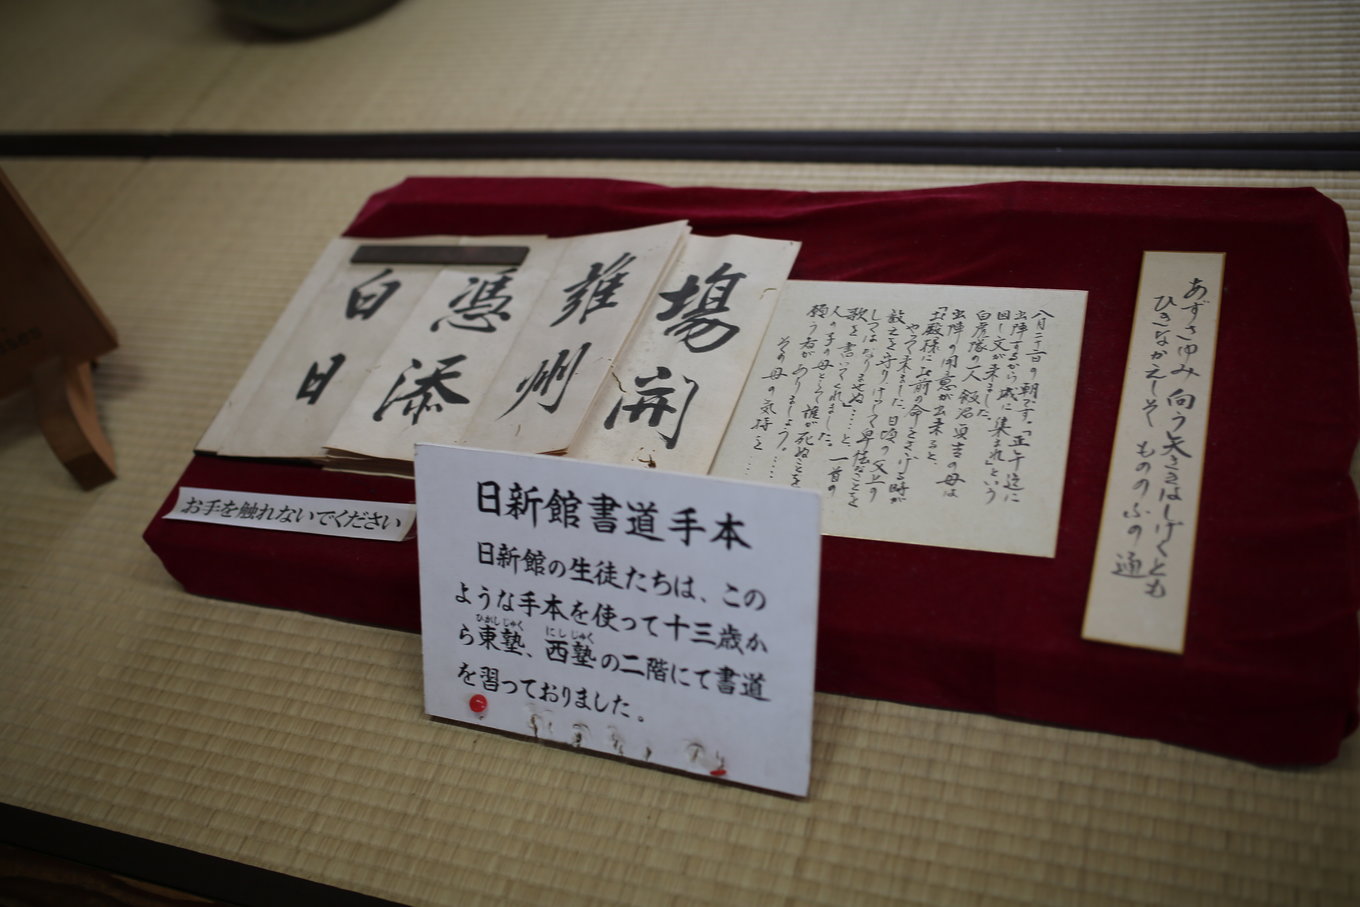 場開
雍州
憑添
白日
八月二十二日の朝です。「正午迄に
出陣するから城に集まれ」という
回し文が来ました。
白虎隊の一人飯沼貞吉の母は
出陣の用意が出来ると、
やって来ました。日頃の父上の
教えを守り、けっして卑怯なことを
してはなりませぬ」……と、一首の
歌を書いてくれました。
人の子の母として誰が死ぬことを
願う者がありましょう。
その母の気持を……
あずさゆみ向う矢さきはしげくとも
ひきなかえしそもののふの道
お手を触れないでください
日新館書道手本
日新館の生徒たちは、この
ような手本を使って十三歳か
ら東塾、西塾の二階にて書道
を習っておりました。
ひがしじゅく
にしじゅく